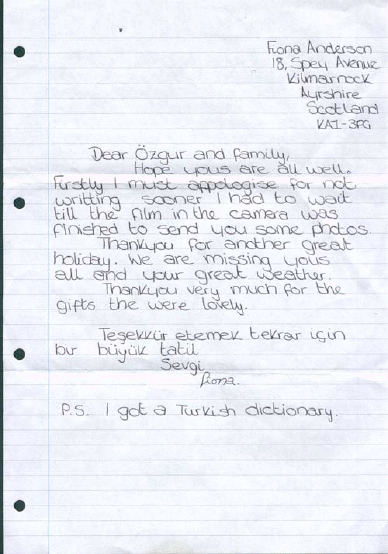 Fiona Anderson
18, Spey Avenue
Kilmarnock
Ayrshire
Scotland
KA1-3PG
Dear Özgur and family,
Hope yous are all well.
Firstly I must appologise for not
writting sooner I had to wait
till the film in the camera was
finished to send you some photos.
Thankyou for another great
holiday. We are missing yous
all and your great weather.
Thankyou very much for the
gifts the were lovely.
Teşekkür etemek tekrar için
bir büyük tatil
Sevgi
Fiona.
P.S. I got a Turkish dictionary.